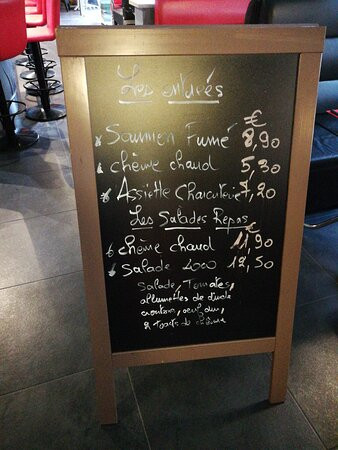 Les entrées
€
* Saumon Fumé 8,90
* chèvre chaud 5,30
* Assiette Charcuterie 7,20
Les Salades Repas
€
* chèvre chaud 11,90
* Salade 2000 12,50
Salade, Tomates,
allumettes de
croutons, oeuf dur,
2 toasts de chèvre